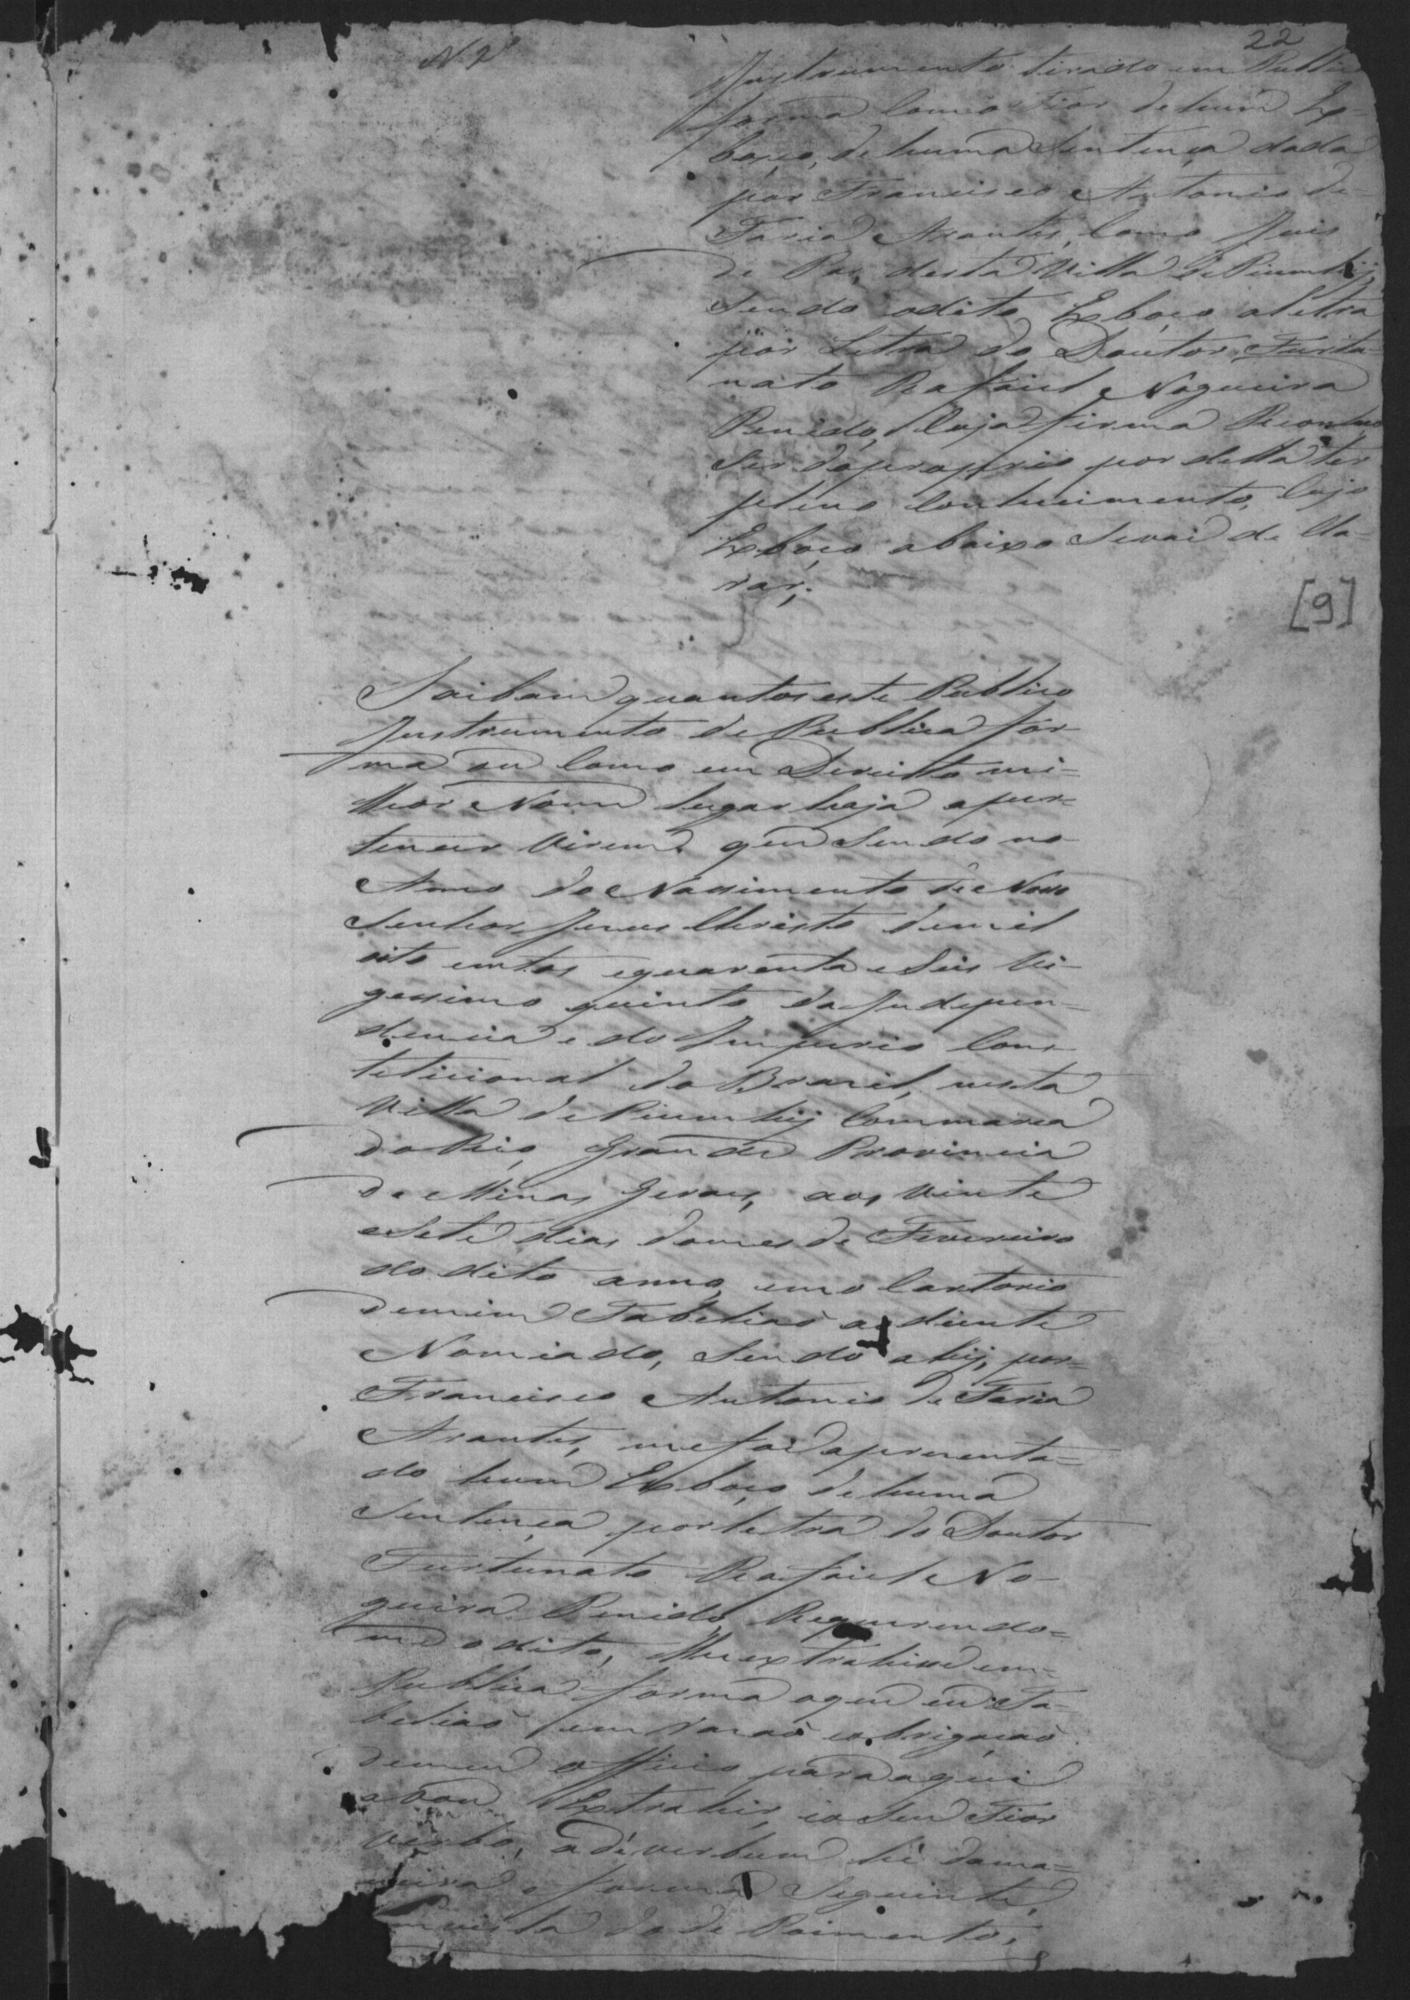 22
N. 2
Instrumento tirado em Publica
forma com o Tior de hum Es-
boço, de huma Sentença dada
por Francisco Antonio de
Faria Arantes, como Juis
de Pas, desta Villa de Piumhij
Sendo odito Esboço aletra
por Letra do Doutor Furtu-
nato Rafaiel Nogueira
Penido, Cuja firma Reconheço
Ser do proprio por della ter
pleno Conhecimento, Cujo
Esboço abaixo Sevai de Cla-
rar;
[9]
Saibam quantos este Publico
Instrumento de Publica for-
ma ou Como em Direito mi-
lhor Nome lugar haja a per-
tencer Virem, que Sendo no
Anno do Nassimento de Nosso
Senhor Jesus Christo demil
oito centos e quarenta e Seis Vi-
gessimo quinto da Indepen-
dencia e do Imperio Cons-
titicional do Brasil, nesta
Villa de Piumhij Commarca
do Rio Grande Provincia
de Minas Gerais, aos Vinte
e Sete dias domes de Fevereiro
do dito anno, em o Cartorio
demim Tabeliaõ a diente
Nomiado, Sendo ahij, por
Francisco Antonio de Faria
Arantes, mefoi aprecenta-
do hum Esboço de huma
Sentença por letra do Doutor
Furtunato Rafaiel No-
gueira Penido, Requerendo-
me odito, lhe extrahisse em-
Publica forma oque eu Ta-
beliaõ em razaõ e obrigaçaõ
demeu Officio para aqui
a bou Extrahir, eo Seu Tior
Verbo, adi verbum hé dama-
neira e forma Seguinte,
do de Poimento,